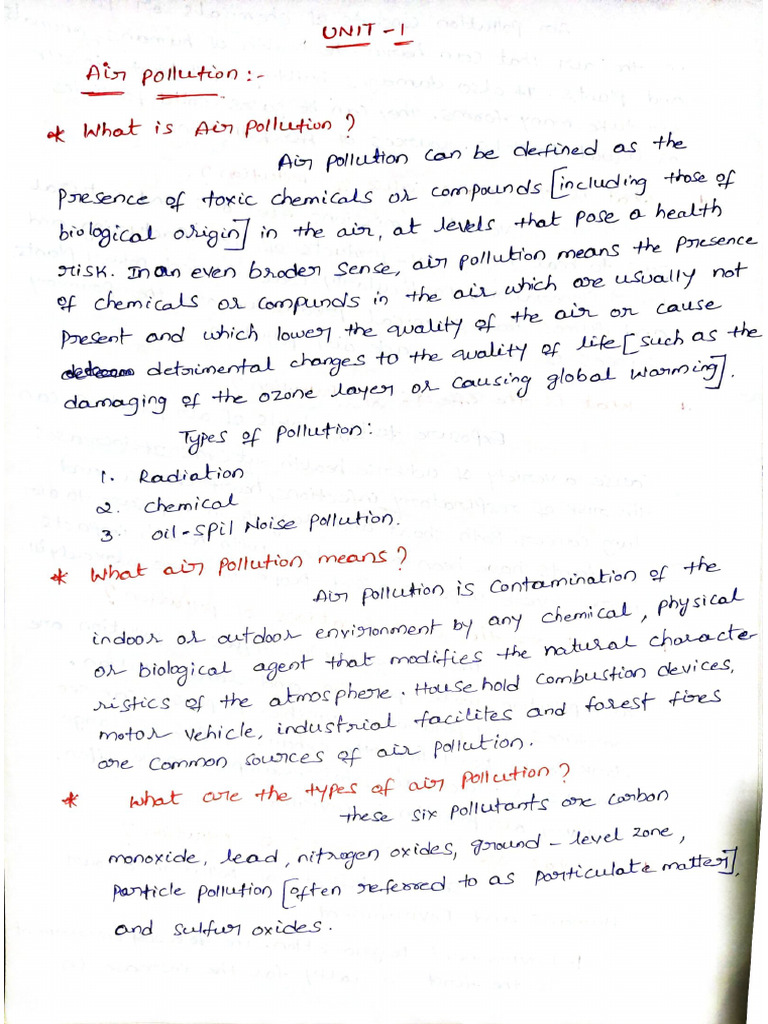 UNIT - 1
Air pollution :-
* What is Air pollution ?
Air pollution can be defined as the
presence of toxic chemicals or compounds [including those of
biological origin] in the air, at levels that pose a health
risk. In an even broder sense, air pollution means the presence
of chemicals or compunds in the air which are usually not
present and which lower the quality of the air or cause
detrimental changes to the quality of life [such as the
damaging of the ozone layer or causing global warming].
Types of pollution:
1. Radiation
2. chemical
3. oil-spil Noise pollution.
* What air pollution means ?
Air pollution is contamination of the
indoor or outdoor environment by any chemical, physical
or biological agent that modifies the natural characte-
ristics of the atmosphere. Household combustion devices,
motor vehicle, industrial facilites and forest fires
are common sources of air pollution.
* What are the types of air pollution ?
these six pollutants are carbon
monoxide, lead, nitrogen oxides, ground - level zone,
particle pollution [often referred to as particulate matter],
and sulfur oxides.